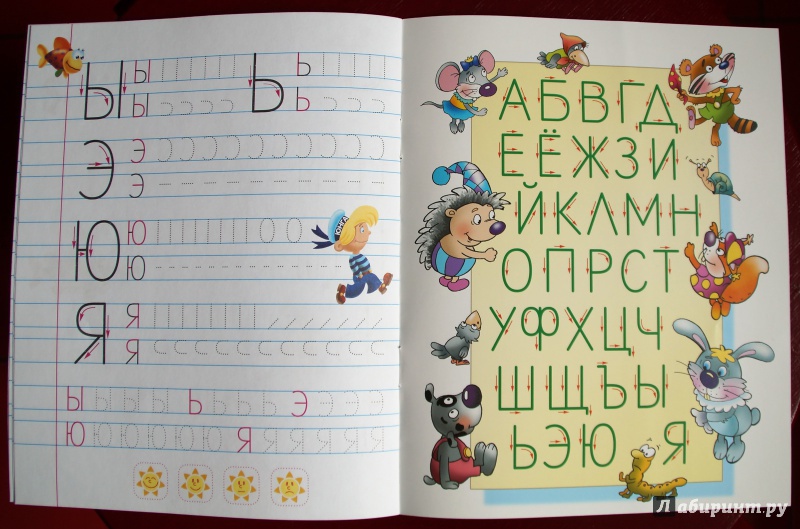 Ы Ы Ь Ь
Ы Ь
Э Э
Э
Ю Ю
Ю
Я Я
Я
Ы Ы Ы Ы Ы Ь Ь Ь Ь Э Э Э Э
Ю Ю Ю Ю Ю Ю Я Я Я Я Я Я
АБВГД
ЕЁЖЗИ
ЙКЛМН
ОПРСТ
УФХЦЧ
ШЩЪЫ
ЬЭЮ Я
Лабиринт.ру